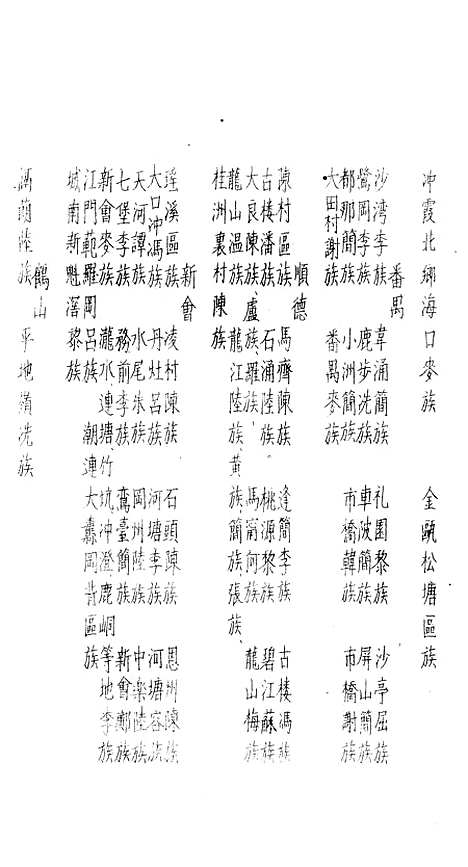 冲霞北鄉海口麥族 金甌松塘區族
番禺
沙湾李族 韋涌簡族 礼園黎族 沙亭屈族
鷺岡李族 鹿步冼族 車陂簡族 屏山簡族
都那簡族 小洲簡族 市橋韓族 市橋謝族
大田村謝族 番禺麥族
順德
陳村區族 馬齊陳族 逢簡李族 古楼馮族
古楼潘族 石涌陸族 桃源黎族 碧江蘇族
大良陳族、盧族、羅族 馮族 甯何族 龍山梅族
龍山温族 龍江陸族、黄族、簡族、張族、
桂洲裏村陳族
新會
瑶溪區族 凌村陳族 石頭陳族 恩州陳族
大口冲馮族 丹灶呂族 河塘李族 河塘容族
天河譚族 水尾朱族 岡州陸族 中楽陸族
七堡李族 務前李族 鸞臺簡族 新會鄭族
新會麥族 瀧水連塘、竹坑、冲澄、鹿峒等地李族
江門範羅岡呂族 潮連大纛岡背區族
城南新魁滘黎族
鶴山
馮蘭陸族 平地嶺冼族